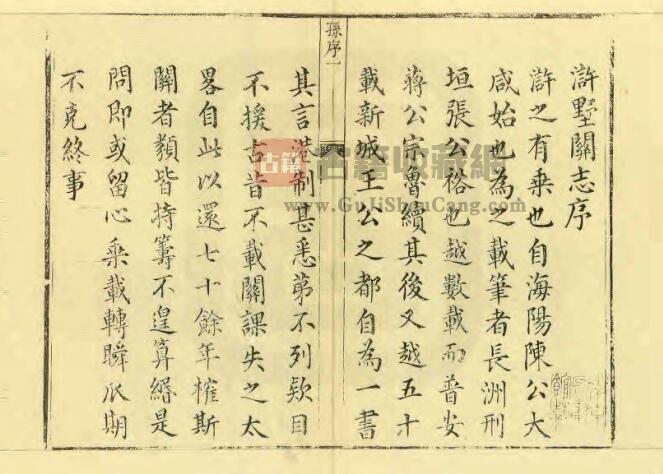 滸墅關志序
滸之有乗也自海陽陳公大
咸始也為之載筆者長洲刑
垣張公裕也越數載而普安
蔣公宗魯續其後又越五十
載新城王公之都自為一書
孫序一
其言制甚悉苐不列欵目
不援古昔不載關課失之太
畧自此以還七十餘年榷斯
關者類皆持籌不遑算緡是
問即或留心乗載轉瞬瓜期
不克終事
古籍
古籍收藏網
www.GuJiShouCang.com